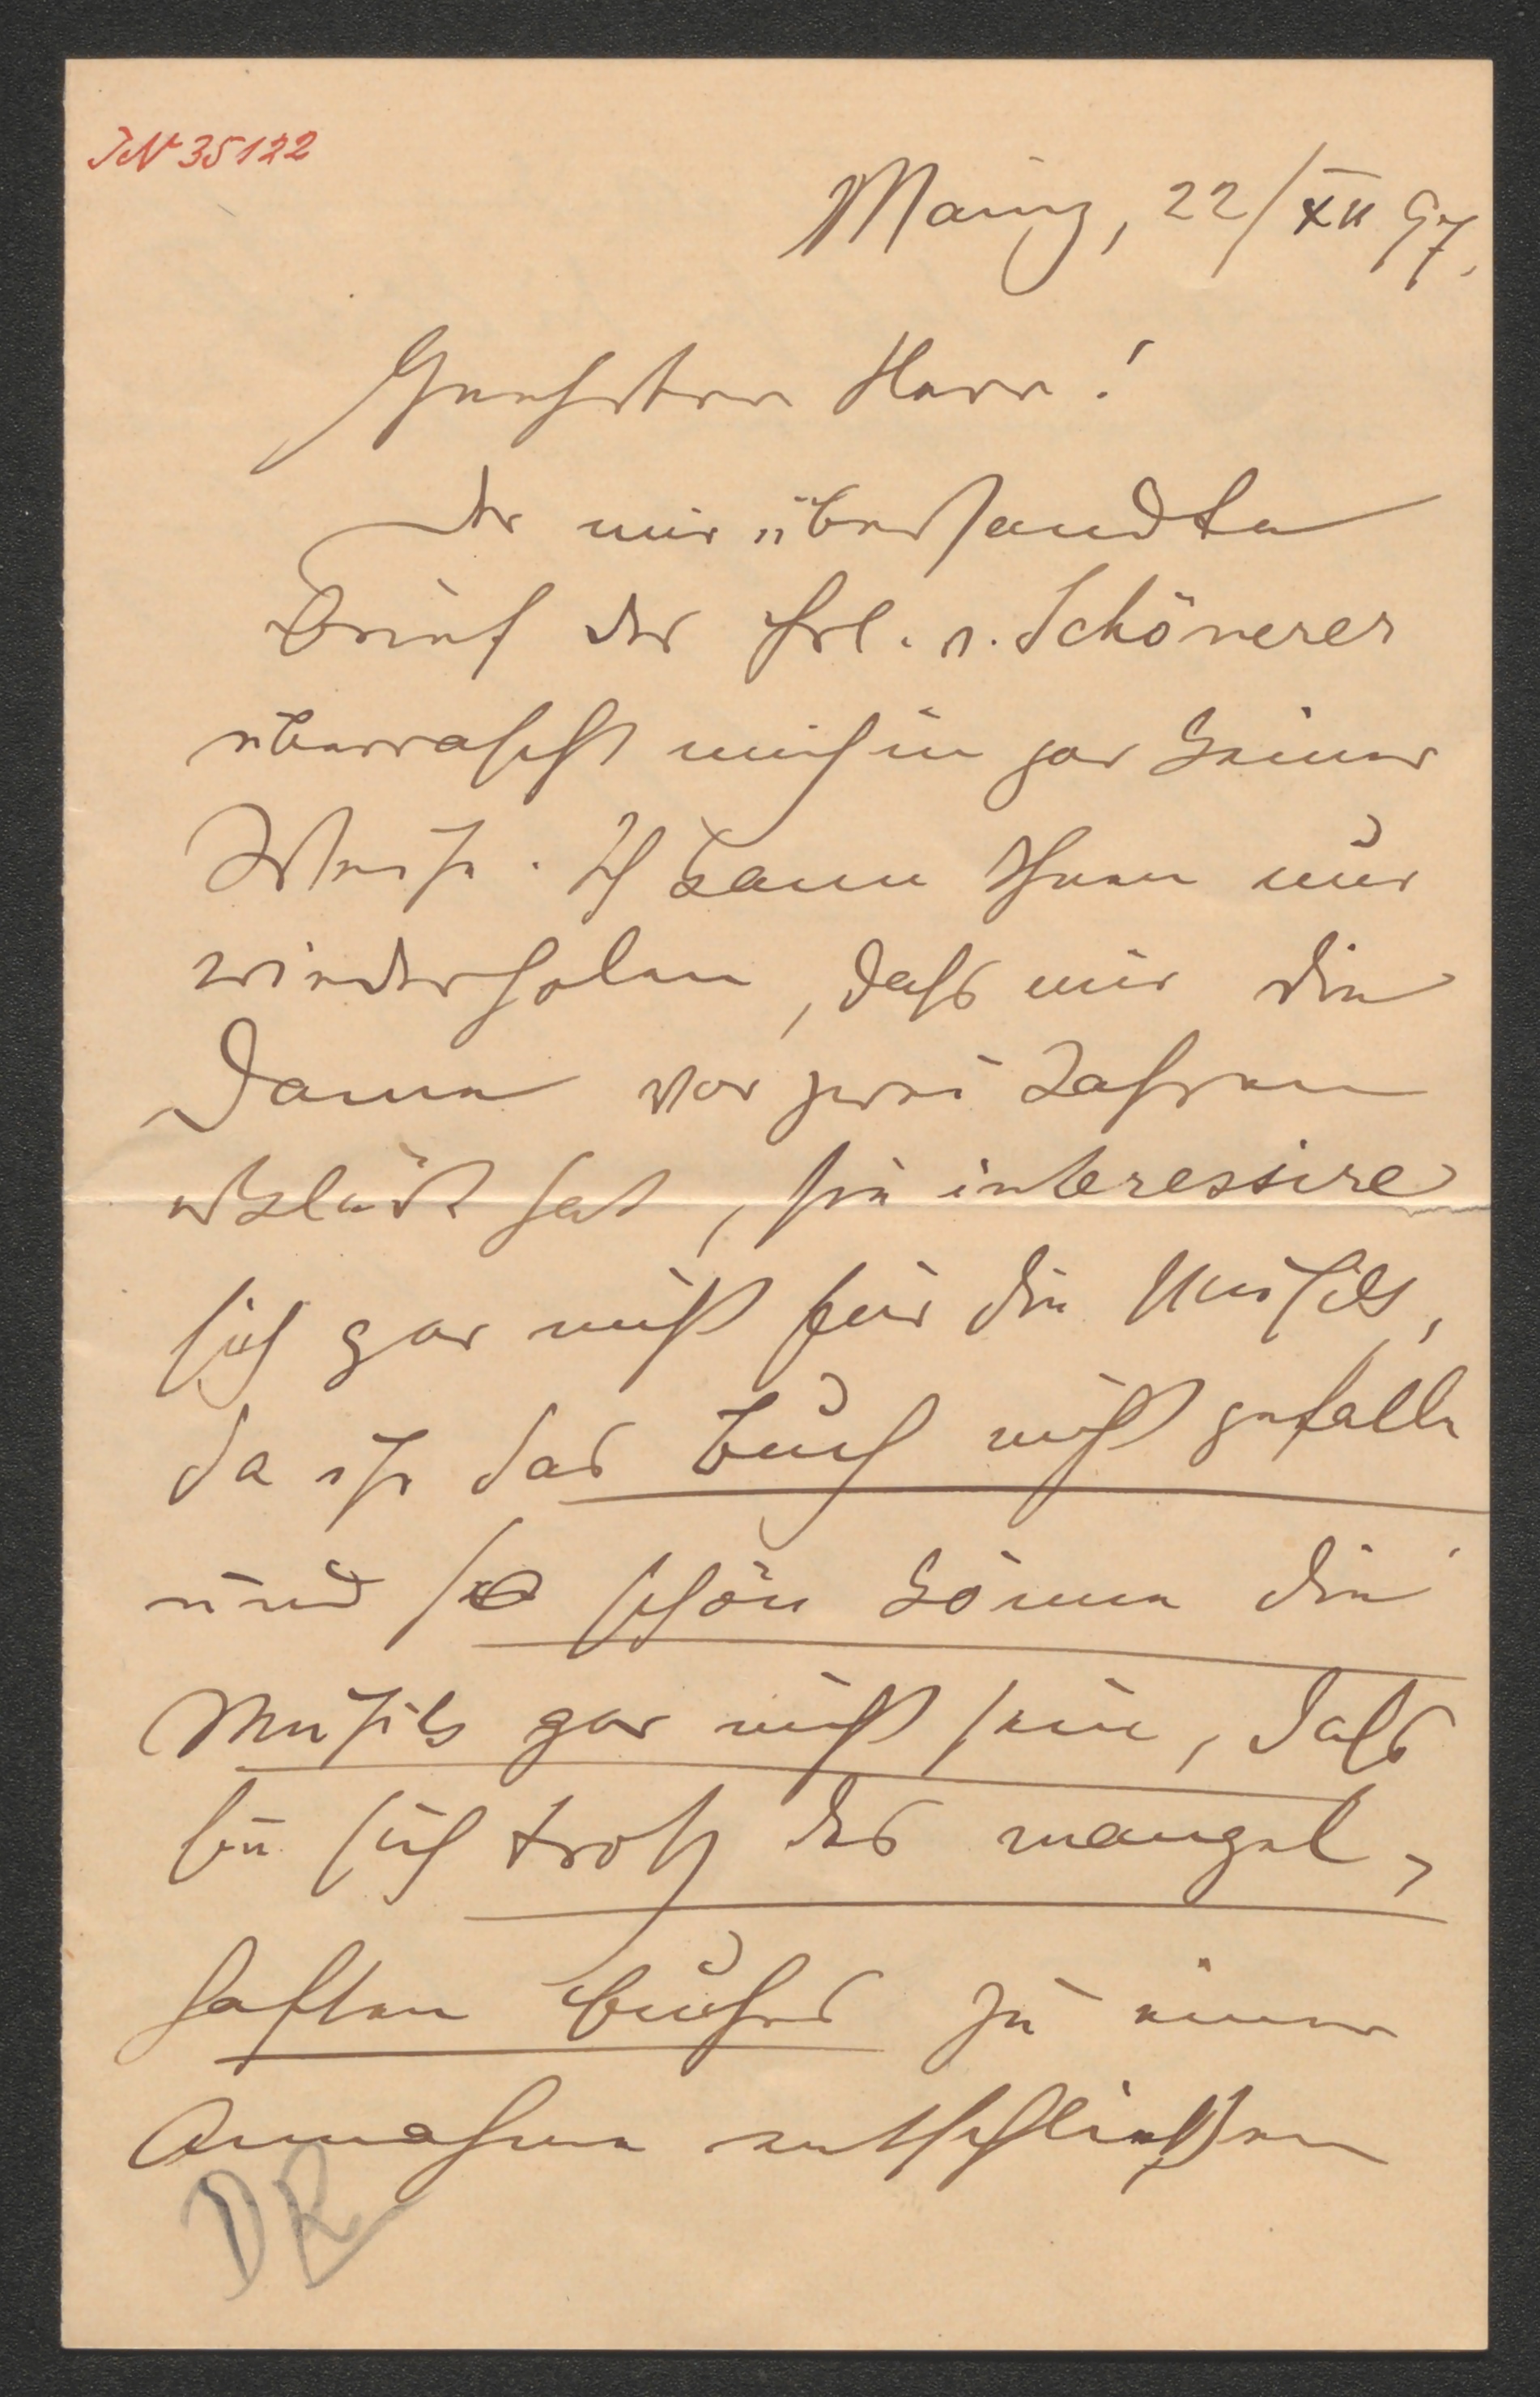 JN 35122
Mainz, 22/XII 97.
Geehrter Herr!
Der mir übersandte
Brief der Frl. v. Schönerer
überrascht mich in gar keiner
Weise. Ich kann Ihnen nur
wiederholen, dass mir die
Dame vor zwei Jahren
erklärt hat, sie interessire
sich gar nicht für die Musik,
da ihr das Buch nicht gefalle
und so schön könne die
Musik gar nicht sein, dass
sie sich trotz des mangel-
haften Buches zu einer
Annahme entschließen
DR